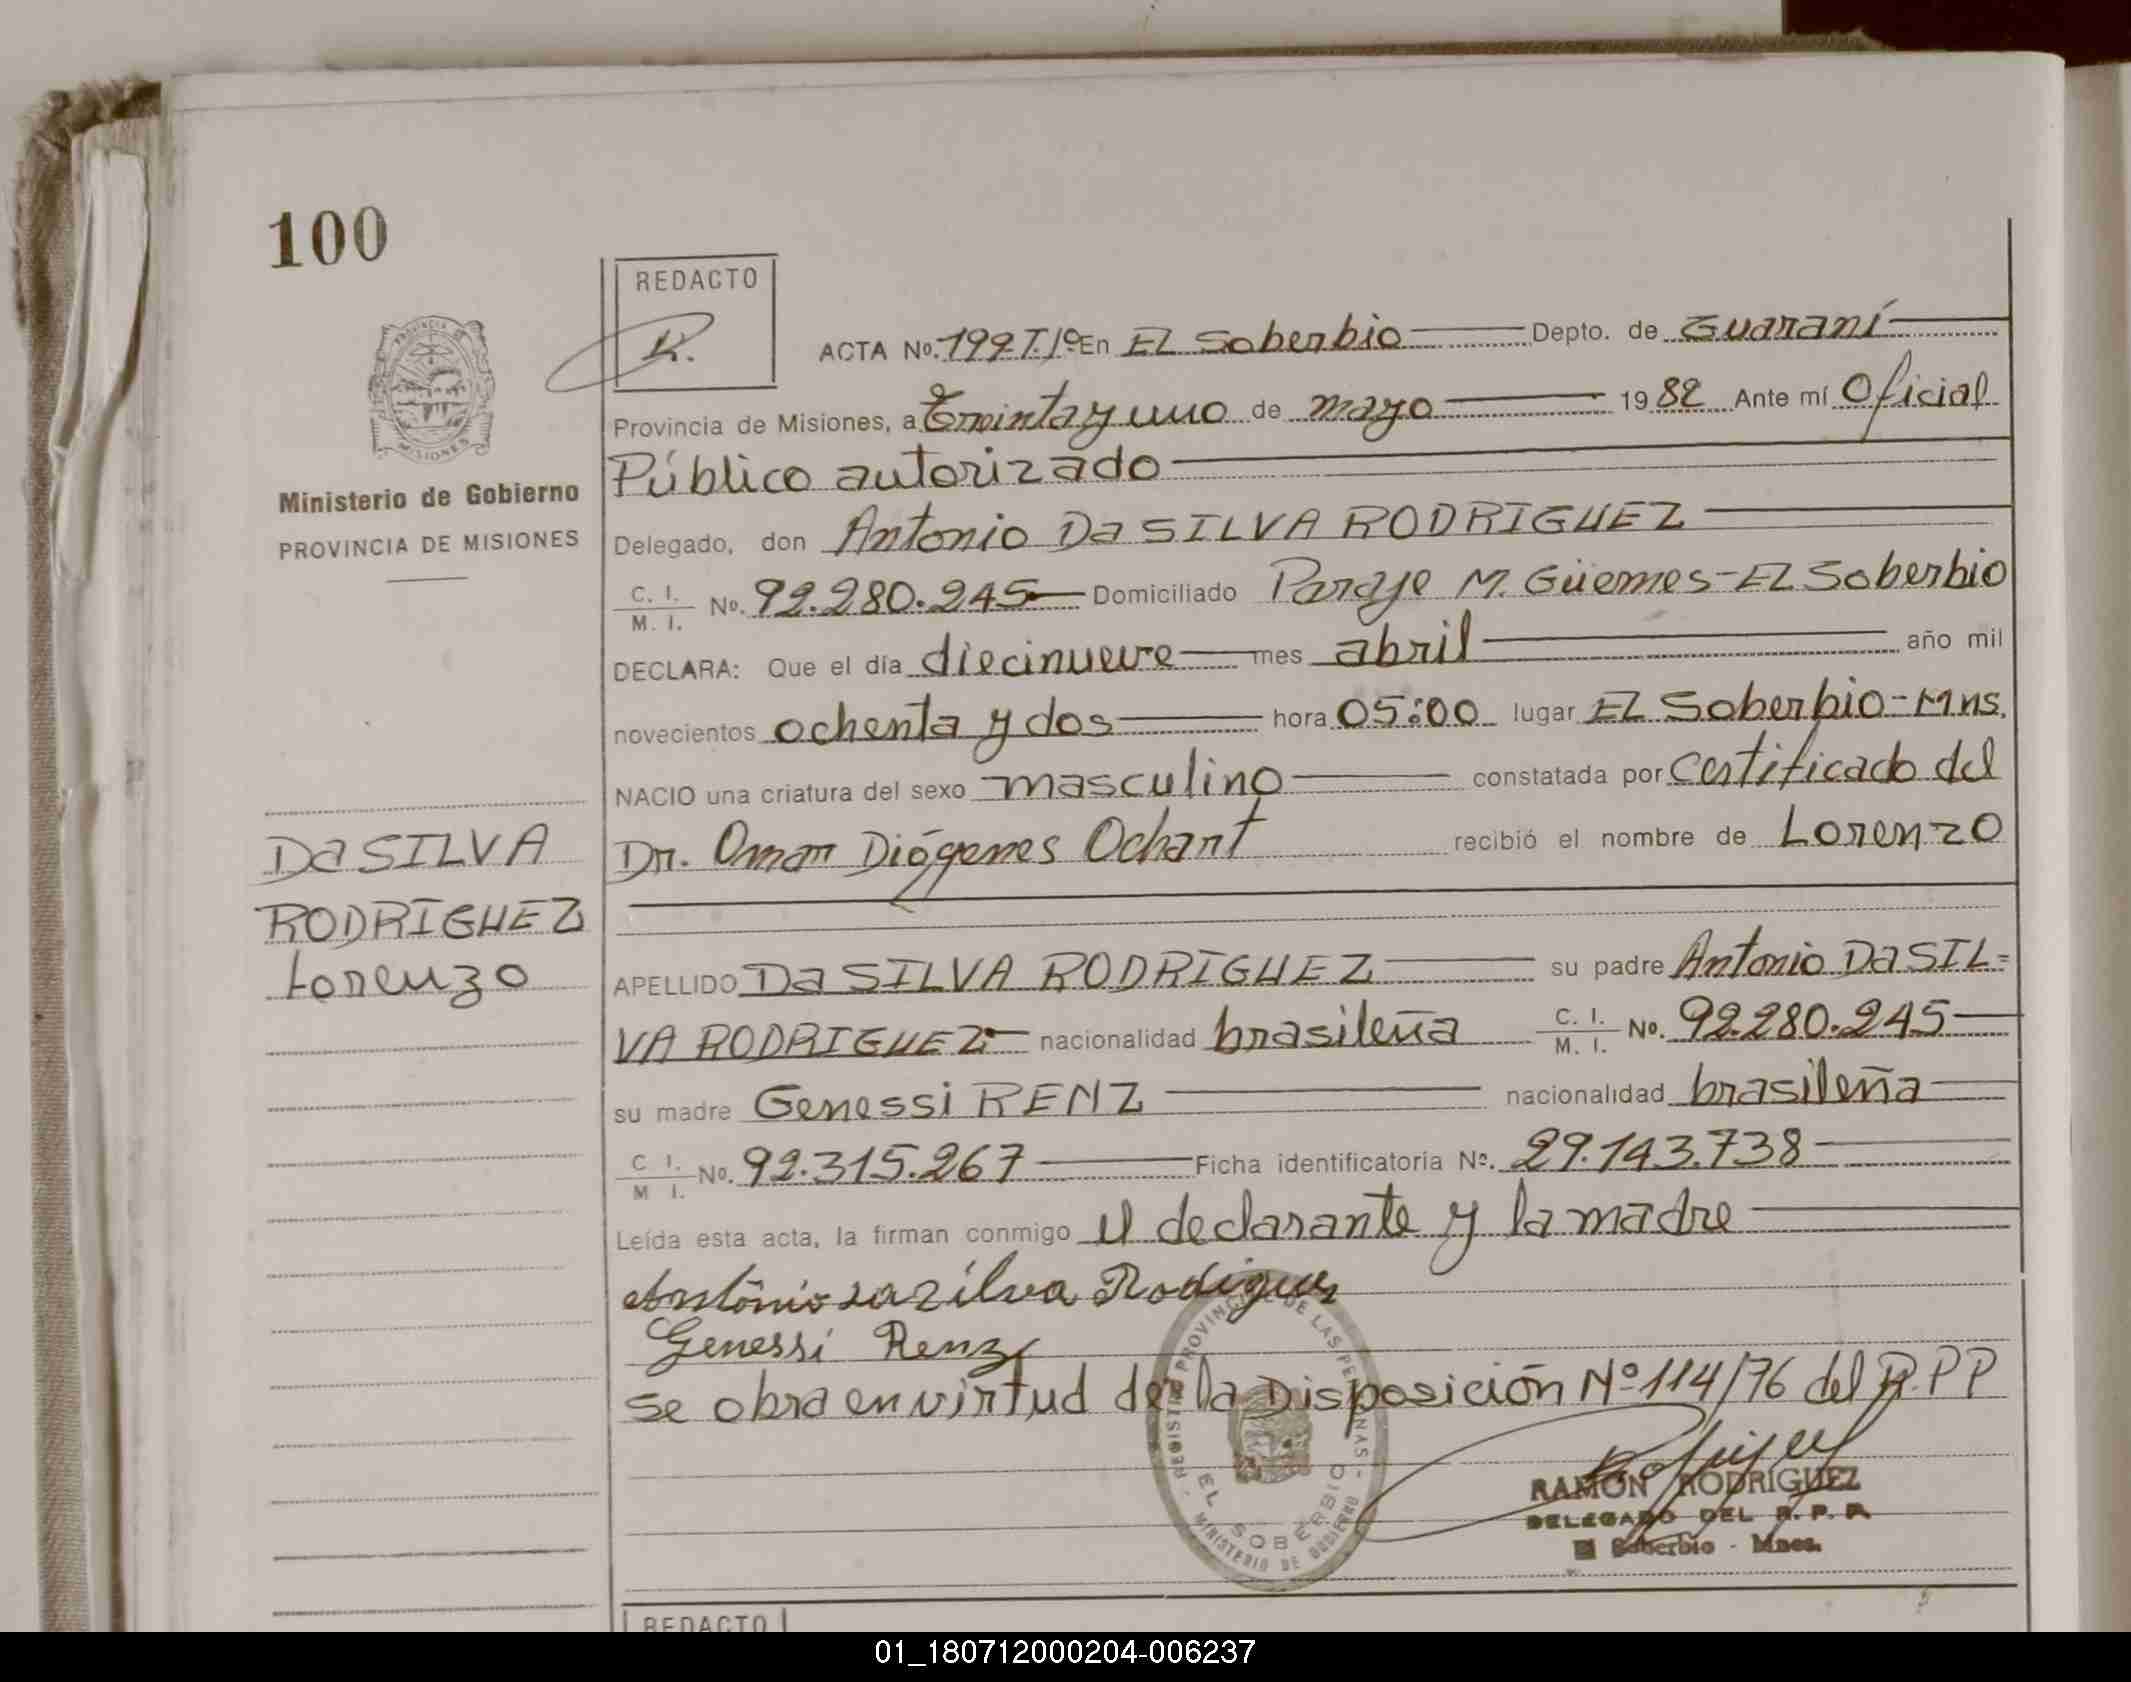 100
REDACTO
R.
ACTA No. 199 T. 1º En El Soberbio Depto. de Guaraní
Provincia de Misiones, a Treinta y uno de mayo 1982 Ante mí Oficial
Público autorizado
Ministerio de Gobierno
PROVINCIA DE MISIONES
Delegado, don Antonio Da SILVA RODRIGUEZ
C. I.
M. I. No. 92.280.245 Domiciliado Paraje M. Güemes - El Soberbio
DECLARA: Que el día diecinueve mes abril año mil
novecientos ochenta y dos hora 05:00 lugar El Soberbio - Mns.
NACIO una criatura del sexo masculino constatada por Certificado del
Dr. Omar Diógenes Ochant recibió el nombre de Lorenzo
Da SILVA
RODRIGUEZ
Lorenzo
APELLIDO Da SILVA RODRIGUEZ su padre Antonio Da SIL=
VA RODRIGUEZ nacionalidad brasileña C. I. M. I. No. 92.280.245
su madre Genessi RENZ nacionalidad brasileña
C I. M I. No. 92.315.267 Ficha identificatoria Nº. 29.143.738
Leída esta acta, la firman conmigo el declarante y la madre
Antônio da Silva Rodigues
Genessi Renz
Se obra en virtud de la Disposición Nº 114/76 del R.P.P
REGISTRO PROVINCIAL DE LAS PERSONAS
EL SOBERBIO
MINISTERIO DE GOBIERNO
RAMÓN RODRÍGUEZ
DELEGADO DEL R. P. P.
El Soberbio - Mnes.
REDACTO
01_180712000204-006237